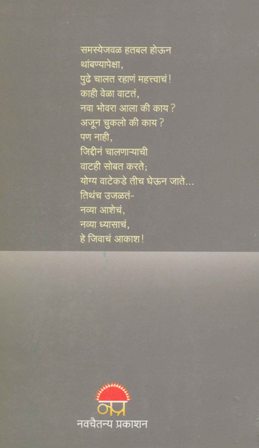 समस्येजवळ हतबल होऊन
थांबण्यापेक्षा,
पुढे चालत रहाणं महत्त्वाचं!
काही वेळा वाटतं,
नवा भोवरा आला की काय?
अजून चुकलो की काय?
पण नाही,
जिद्दीनं चालणाऱ्याची
वाटही सोबत करते;
योग्य वाटेकडे तीच घेऊन जाते...
तिथंच उजळतं-
नव्या आशेचं,
नव्या ध्यासाचं,
हे जिवाचं आकाश!
नप्र
नवचैतन्य प्रकाशन